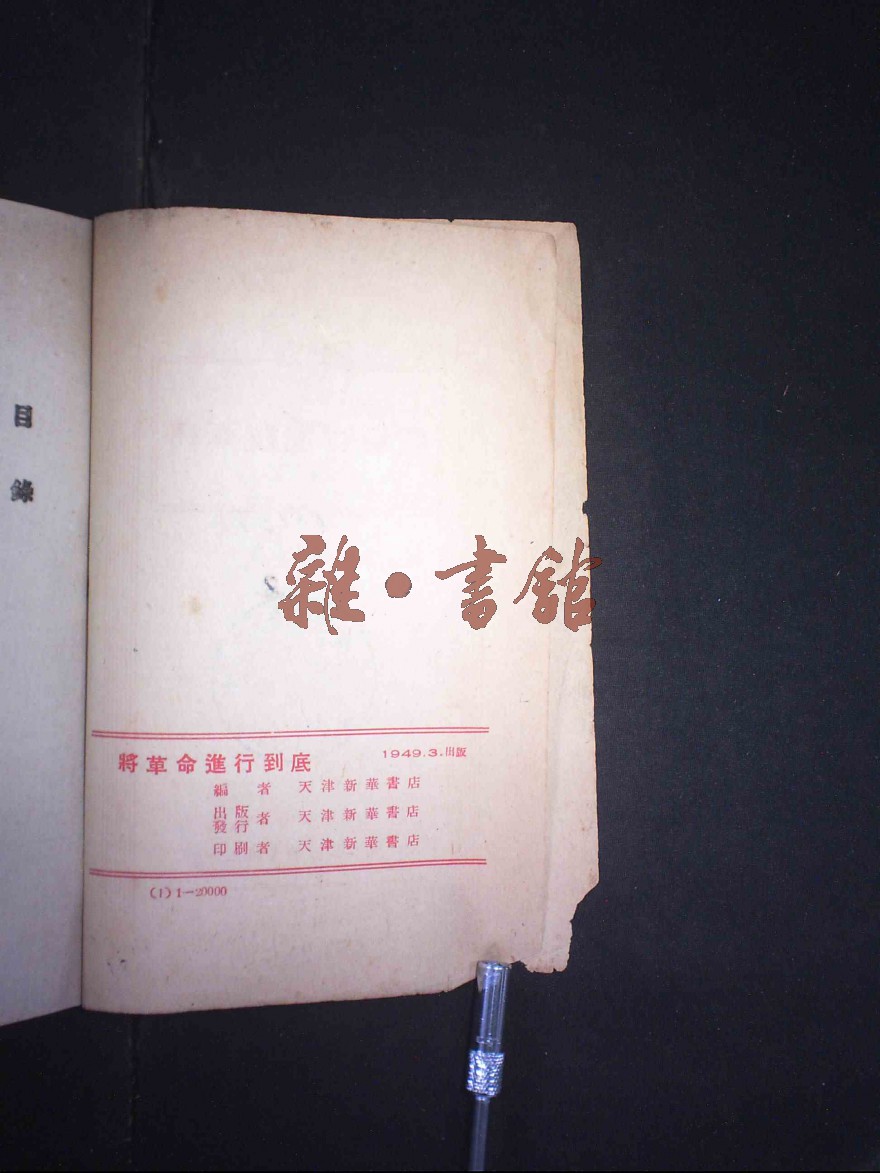 目錄
雜·書館
將革命進行到底
1949.3.出版
編者 天津新華書店
出版
發行者 天津新華書店
印刷者 天津新華書店
(1)1—20000